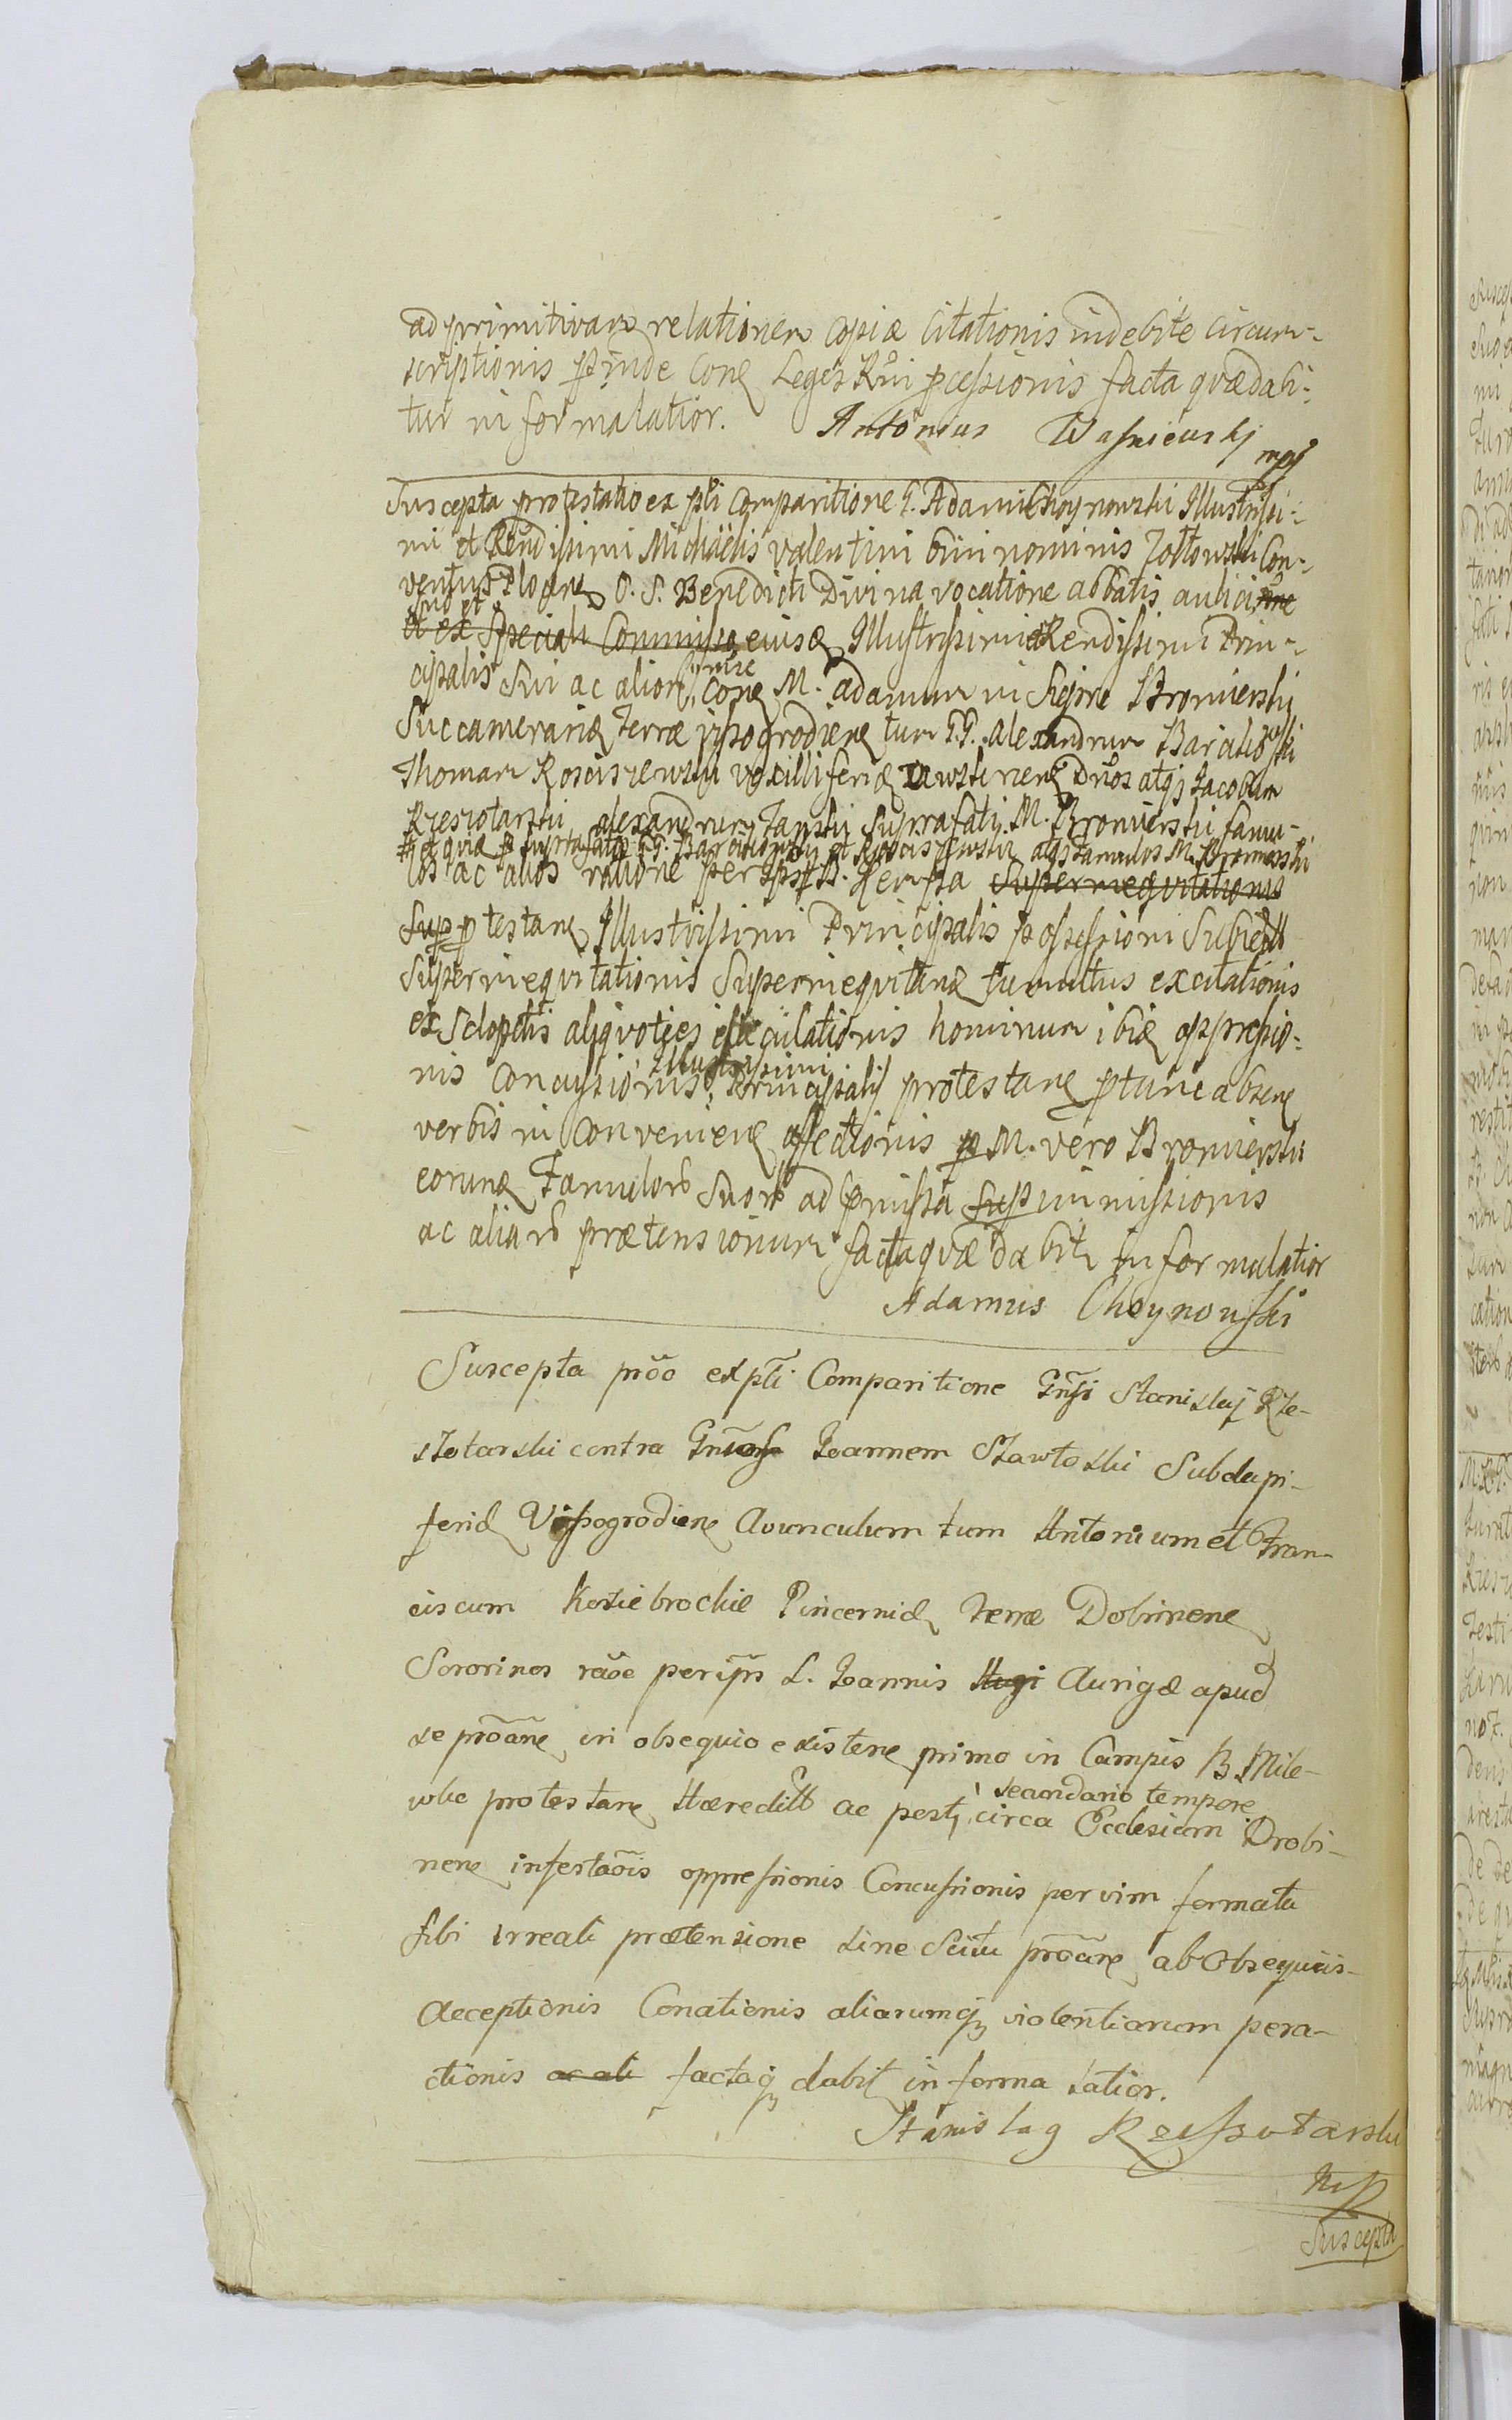 ad primitivam relationem copiæ Citationis indebite circum-
scriptionis perinde Conq Leges Rni pcessionis facta quæ dabi-
tur in forma latior. Antonius Wasniewskj mpj
Suscepta protestatio ex pti Comparitione G. Adami Choynowski Illustrissi-
mi et Rendissimi Michäelis valentini bini nominis Zołtowski Con-
ventus Plocens O. S. Benedicti Divina vocatione abbatis aulici
suo et
et ex Speciali Commisso eiusd Illustrissimi et Rendissimi Prin-
cipalis Sui ac alior Conq M. adamum in Siepre Bromierski
Succamerarid Terræ vissogrodiens tum G.G. Alexandrum Barcikowski
Thomam Kosciszewski vexilliferid Zawskriens Dnos atqj Jacobum
Rzeszotarski alexandrum Janski Suprafati M. Bromierski famu-
los ac alios ratione per ipsos B. Kempa Superinequitationis
Supp testans Illustrissimi Principalis possessioni Subiectt
Superinequitationis Superinequitand tumultus excitationis
ex Sclopetis aliqvoties eiaculationis hominum ibid oppressio-
nis Concussionis, Illustrissimi Principalis protestans ptunc absens
verbis in Conveniens affectionis p M. vero Bromierski
eorund Famulor Suor ad pmissa Sup immissionis
ac aliar prætensionum facta quæ dabit in forma latior
Adamus Choynowski
Suscepta prõo ex pti Comparitione Gnsi Stanislaj Rze-
szotarski contra Gnsos Joannem Szawłoski Subdapi-
ferid Vissogrodiens Avunculum tum Antonium et Fran-
ciscum Koziebrockie Pincernid Terræ Dobrinens
Sororinos raõe per ipsos L. Joannis Aurigæ apud
se prõans in obsequio existens primo in Campis B. Mile-
wko protestans Hæreditt ac post secundario tempore circa Ecclesiam Drobi-
nens infestaõis oppressionis Concussionis per vim formata
sibi irreali prætensione sine Scitu prõans ab Obsequiis
Acceptionis Conationis aliarumqj violentiarum pera-
ctionis ac ali factaqj dabit in forma latior.
Stanislag Rzessotarski
mp
Suscepta